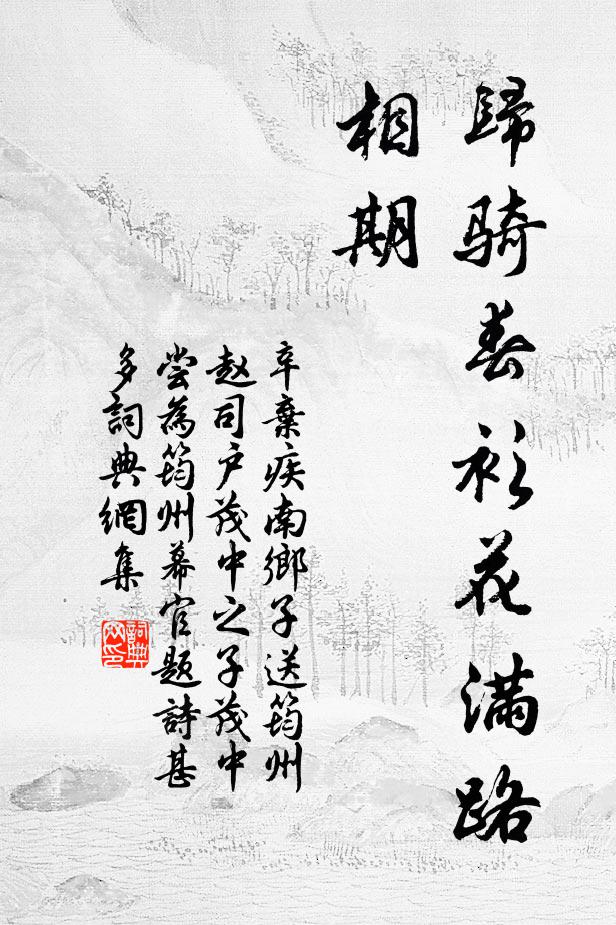 歸騎春衫花滿路
相期
辛棄疾南鄉子送筠州
赵司戶茂中之子茂中
嘗為筠州幕官題詩甚
多詞典網集
詞典
网印